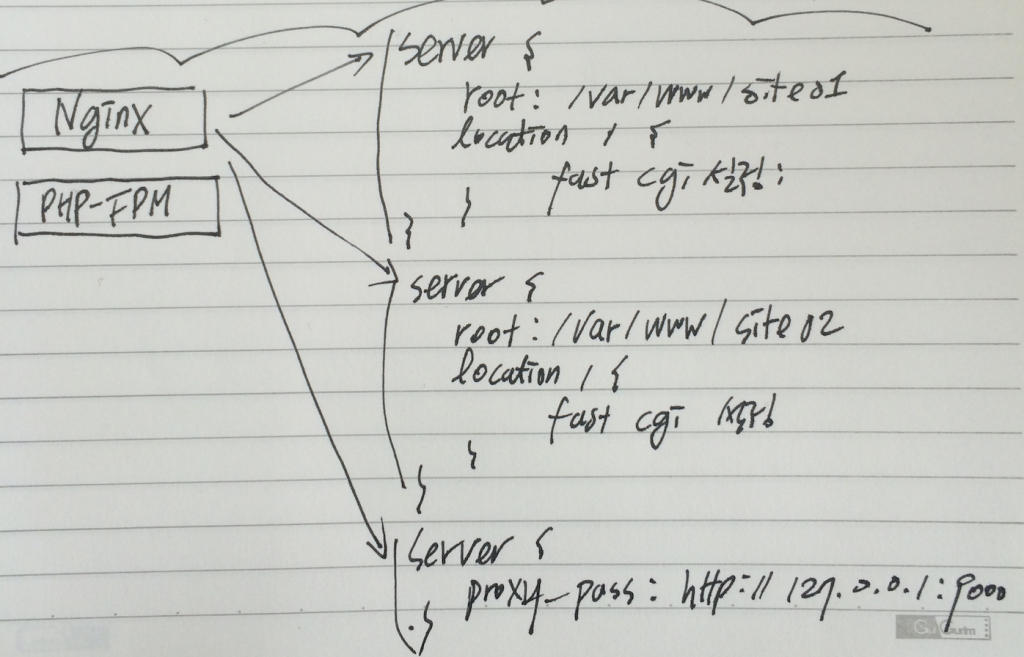 Nginx
PHP-FPM
server {
root: /var/www/site01
location / {
fast cgi 설정;
}
}
server {
root: /var/www/site02
location / {
fast cgi 설정
}
}
server {
proxy_pass: http://127.0.0.1:9000
}